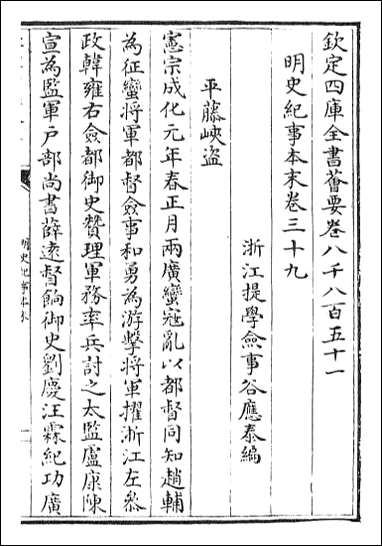 欽定四庫全書薈要卷八千八百五十一
明史紀事本末卷三十九
浙江提學僉事谷應泰編
平藤峽盜
憲宗成化元年春正月兩廣蠻寇亂以都督同知趙輔
為征蠻將軍都督僉事和勇為游擊將軍擢浙江左叅
政韓雍右僉都御史贊理軍務率兵討之太監盧康陳
宣為監軍户部尚書薛逺督餉御史劉慶汪霖紀功廣
明史紀事本末